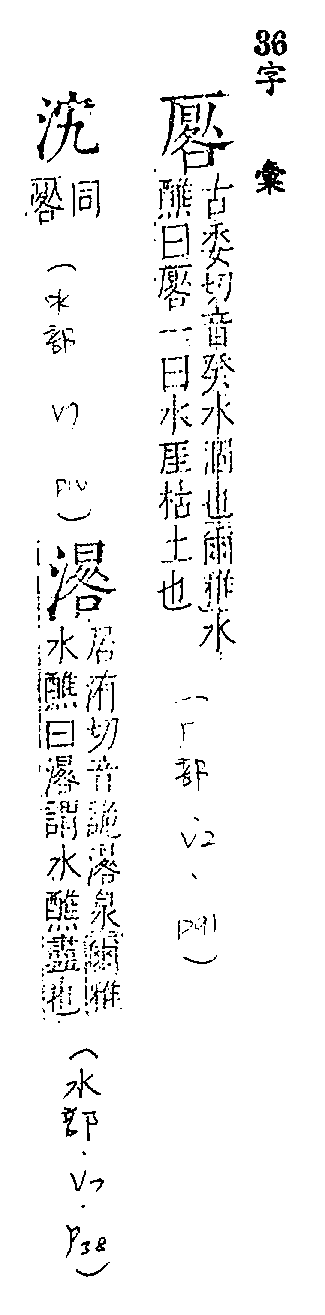 36字彙
厬
古委切音癸水涸也爾雅水
醮曰厬一曰水厓枯土也
(厂部、V2、P91)
同厬
(水部 V7
濐
居洧切音詭濐泉爾雅
水醮曰濐謂水醮盡也
(水部.V7.P38)